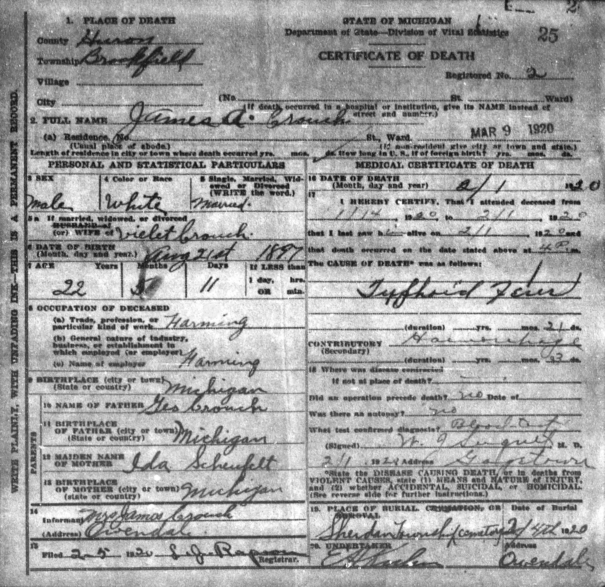 STATE OF MICHIGAN
Department of State—Division of Vital Statistics
25
CERTIFICATE OF DEATH
Registered No. 2
1. PLACE OF DEATH
County Huron
Township Brookfield
Village
City
(No. St. Ward)
(If death occurred in a hospital or institution, give its NAME instead of street and number.)
2. FULL NAME James A. Crouch
(a) Residence. No. St. Ward.
(Usual place of abode) (If non-resident give city or town and state.)
MAR 9 1920
Length of residence in city or town where death occurred yrs. mos. ds. How long in U. S., if of foreign birth? yrs. mos. ds.
PERSONAL AND STATISTICAL PARTICULARS
3 SEX
Male
4 Color or Race
White
5 Single, Married, Widowed or Divorced
(WRITE the word.)
Married
5a If married, widowed, or divorced
HUSBAND of
(or) WIFE of Violet Crouch
6 DATE OF BIRTH
(Month, day and year) Aug 21st 1897
7 AGE Years Months Days If LESS than
1 day, hrs.
OR min.
22 5 11
8 OCCUPATION OF DECEASED
(a) Trade, profession, or
particular kind of work Farming
(b) General nature of industry,
business, or establishment in
which employed (or employer)
(c) Name of employer Farming
9 BIRTHPLACE (city or town)
(State or country) Michigan
PARENTS
10 NAME OF FATHER Geo Crouch
11 BIRTHPLACE
OF FATHER (city or town)
(State or country) Michigan
12 MAIDEN NAME
OF MOTHER Ida
13 BIRTHPLACE
OF MOTHER (city or town)
(State or country) Michigan
14
Informant Mrs James Crouch
(Address) Owendale
15
Filed 2-5 1920 L. J.
Registrar.
MEDICAL CERTIFICATE OF DEATH
16 DATE OF DEATH
(Month, day and year) 2/1 1920
17
I HEREBY CERTIFY, That I attended deceased from
1/14 1920 to 2/1 1920
that I last saw alive on 2/1 1920
and that
death occurred on the date stated above at 4 P m.
The CAUSE OF DEATH* was as follows:
Typhoid Fever
(duration) yrs. mos. 21 ds.
CONTRIBUTORY Haemorrhage
(Secondary)
(duration) yrs. mos. ds.
18 Where was disease contracted
if not at place of death?
Did an operation precede death? no Date of
Was there an autopsy? no
What test confirmed diagnosis? Blood
(Signed) M. D.
2/1 1920 Address Gagetown
*State the DISEASE CAUSING DEATH, or in deaths from
VIOLENT CAUSES, state (1) MEANS and NATURE OF INJURY,
and (2) whether ACCIDENTAL, SUICIDAL, or HOMICIDAL.
(See reverse side for further instructions.)
19. PLACE OF BURIAL, CREMATION, OR REMOVAL Date of Burial
Sheridan Township Cemetery 2/4th 1920
20. UNDERTAKER Address
Owendale
WRITE PLAINLY, WITH UNFADING INK—THIS IS A PERMANENT RECORD.